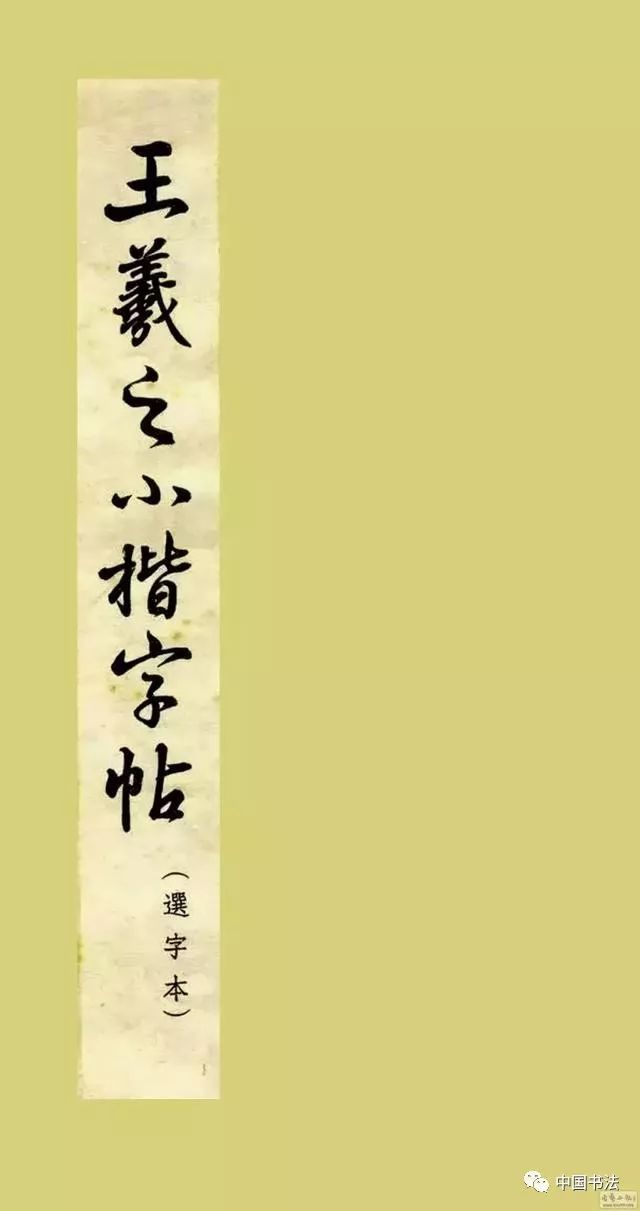 王羲之小楷字帖
（選字本）
中国书法